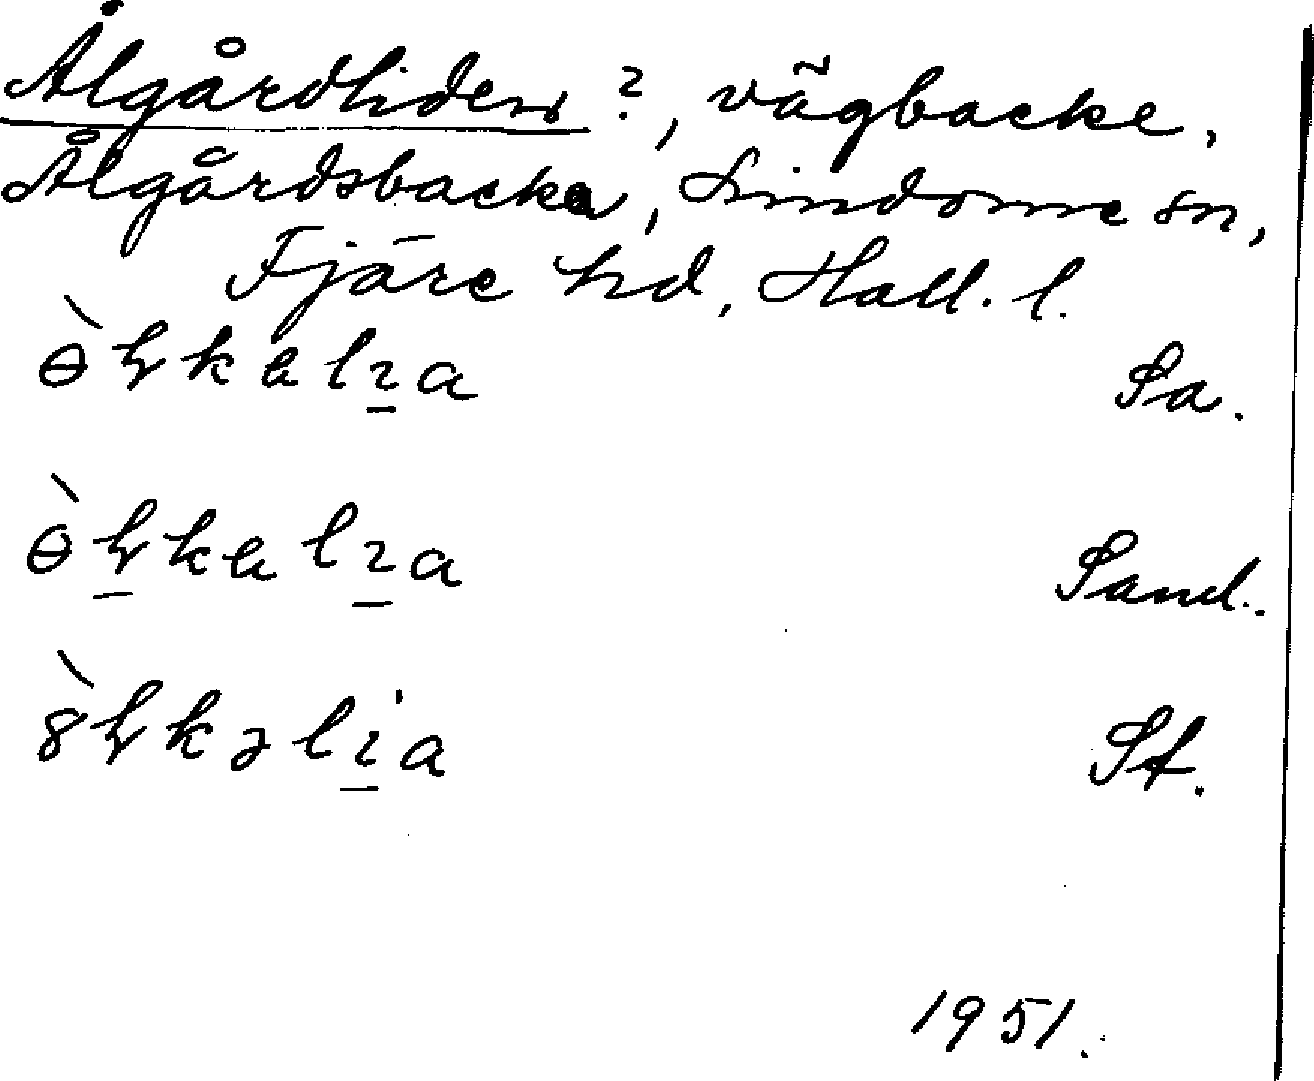 Ålgårdliden ?, vägbacke,
Ålgårdsbacka, Lindome sn,
Fjäre hd, Hall. l.
Sa.
Sand.
St.
1951.